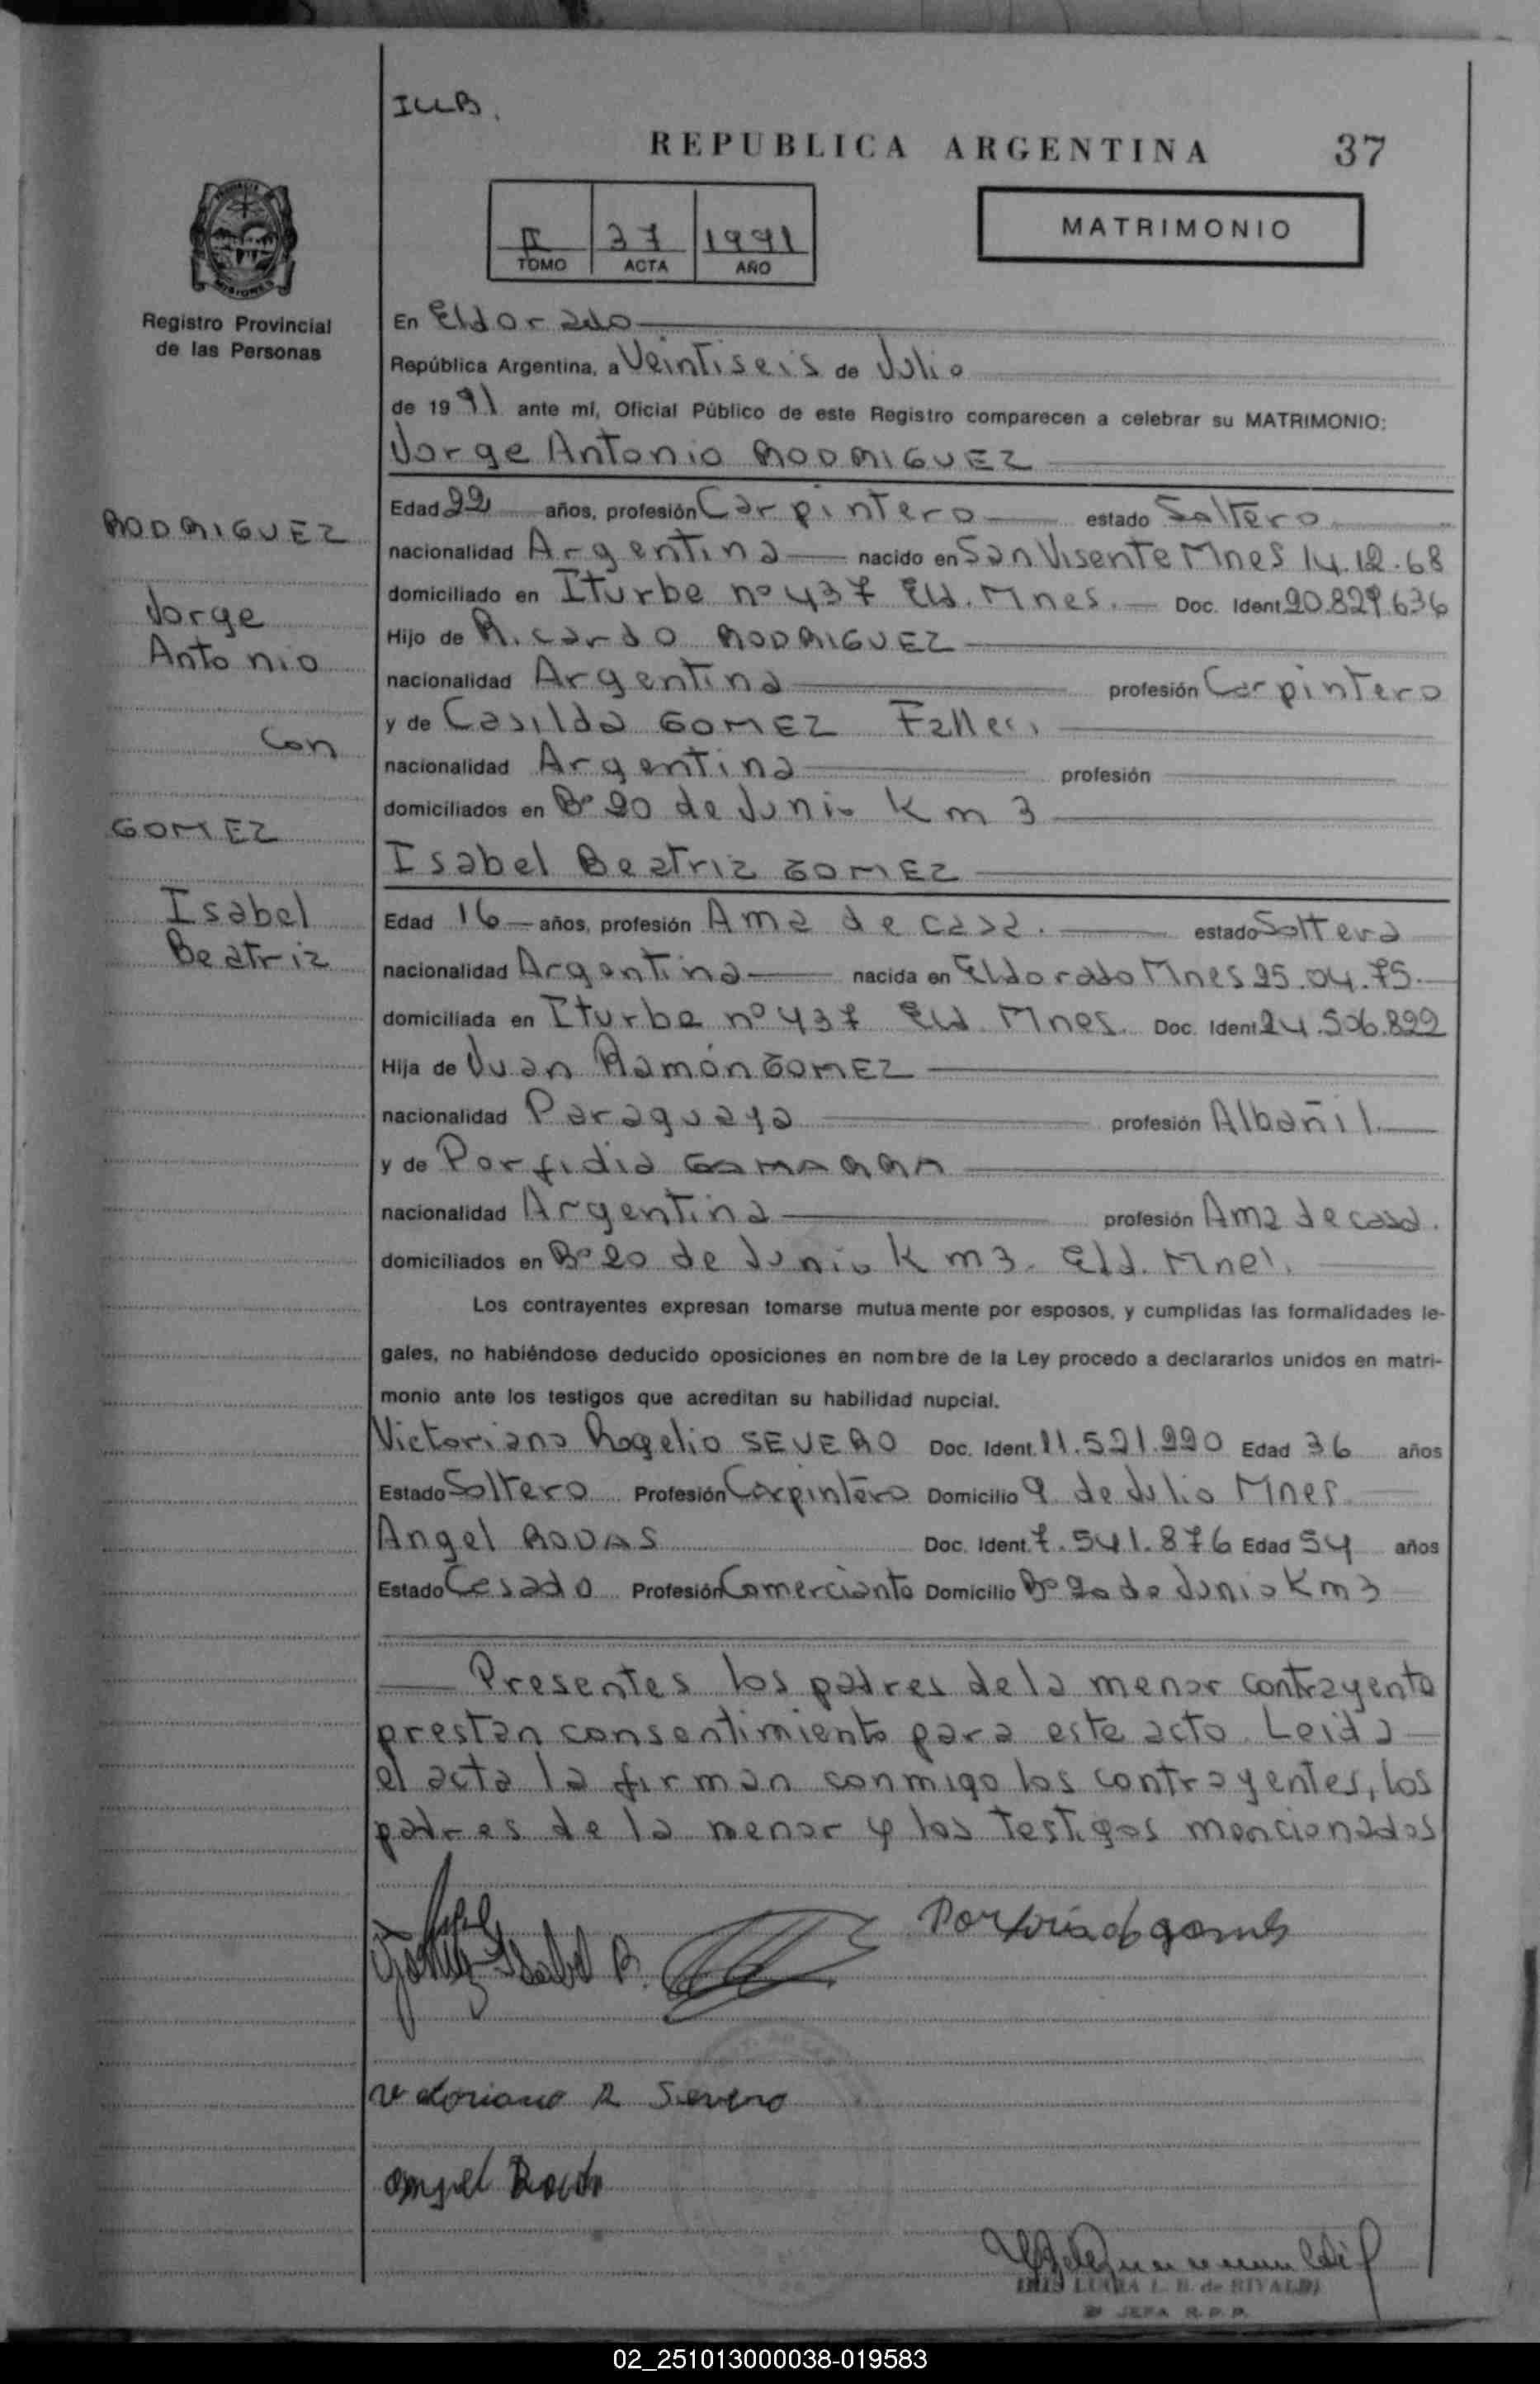 REPUBLICA ARGENTINA 37
II 37 1991
TOMO ACTA AÑO
MATRIMONIO
Registro Provincial
de las Personas
En Eldorado
República Argentina, a Veintiseis de Julio
de 1991 ante mí, Oficial Público de este Registro comparecen a celebrar su MATRIMONIO:
Jorge Antonio RODRIGUEZ
RODRIGUEZ
Jorge
Antonio
Con
GOMEZ
Isabel
Beatriz
Edad 22 años, profesión Carpintero estado Soltero
nacionalidad Argentina nacido en San Visente Mnes 14.12.68
domiciliado en Iturbe nº 437 Eld. Mnes. Doc. Ident. 20.829.636
Hijo de Ricardo RODRIGUEZ
nacionalidad Argentina profesión Carpintero
y de Casilda GOMEZ
nacionalidad Argentina profesión
domiciliados en Bº 20 de Junio Km 3
Isabel Beatriz GOMEZ
Edad 16 años, profesión Ama de casa. estado Soltera
nacionalidad Argentina nacida en Eldorado Mnes 25.04.75.
domiciliada en Iturbe nº 437 Eld. Mnes. Doc. Ident 24.506.822
Hija de Juan Ramón GOMEZ
nacionalidad Paraguaya profesión Albañil.
y de Porfidia GAMARRA
nacionalidad Argentina profesión Ama de casa.
domiciliados en Bº 20 de Junio Km 3. Eld. Mnes.
Los contrayentes expresan tomarse mutuamente por esposos, y cumplidas las formalidades le-
gales, no habiéndose deducido oposiciones en nombre de la Ley procedo a declararlos unidos en matri-
monio ante los testigos que acreditan su habilidad nupcial.
Victoriano Rogelio SEVERO Doc. Ident. 11.521.220 Edad 36 años
Estado Soltero Profesión Carpintero Domicilio 9 de Julio Mnes
Angel RODAS Doc. Ident. 7.541.876 Edad 54 años
Estado Casado Profesión Comerciante Domicilio Bº 20 de Junio Km 3
Presentes los padres de la menor contrayente
prestan consentimiento para este acto. Leida
el acta la firman conmigo los contrayentes, los
padres de la menor y los testigos mencionados
Isabel B.
Victoriano R Severo
L. B. de RIVALDI
JEFA R.P.P.
02_251013000038-019583